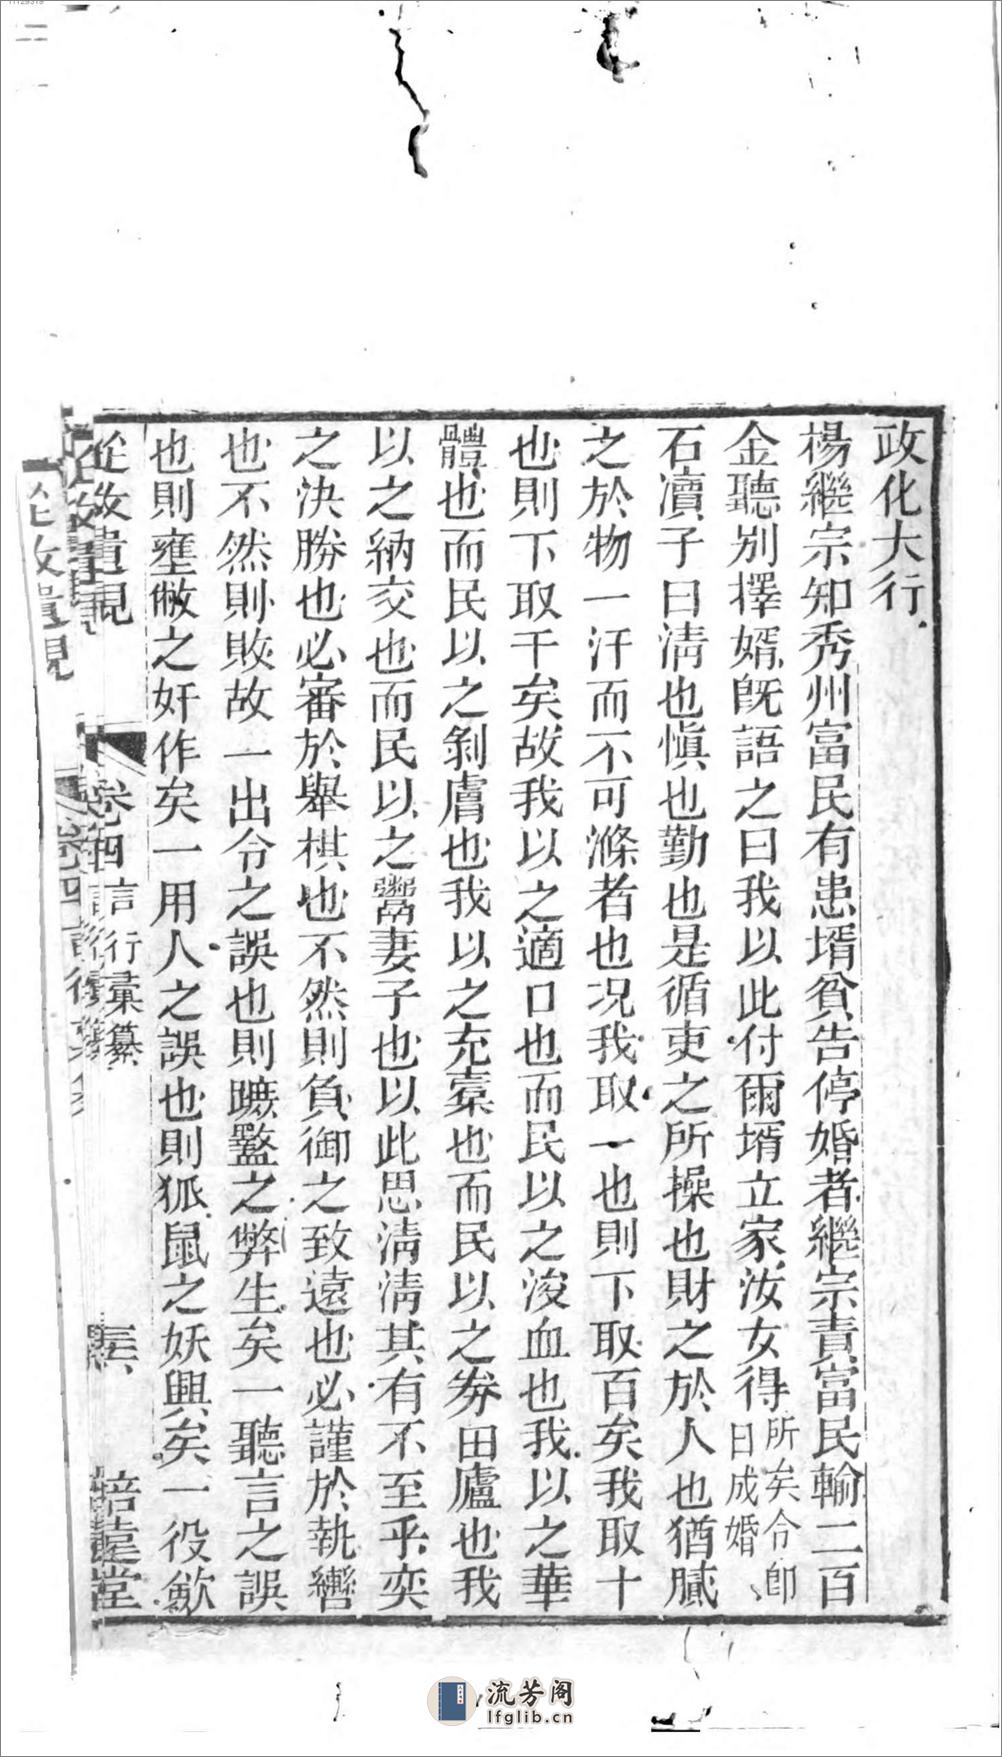 政化大行
楊繼宗知秀州富民有患壻貧告停婚者繼宗責富民輸二百
金聽別擇婿既語之曰我以此付爾壻立家汝女得所矣令即日成婚
石瀆子曰淸也愼也勤也是循吏之所操也財之於人也猶膩
之於物一汙而不可滌者也况我取一也則下取百矣我取十
也則下取千矣故我以之適口也而民以之浚血也我以之華
體也而民以之剝膚也我以之充橐也而民以之券田廬也我
以之納交也而民以之鬻妻子也以此思淸淸其有不至乎奕
之決勝也必審於舉棋也不然則負御之致遠也必謹於執轡
也不然則敗故一出令之誤也則蹠盭之弊生矣一聽言之誤
也則壅敝之奸作矣一用人之誤也則狐鼠之妖興矣一役歛
從政遺規 卷四 言行彙纂 培遠堂
從政遺規 卷四
流芳阁
lfglib.cn